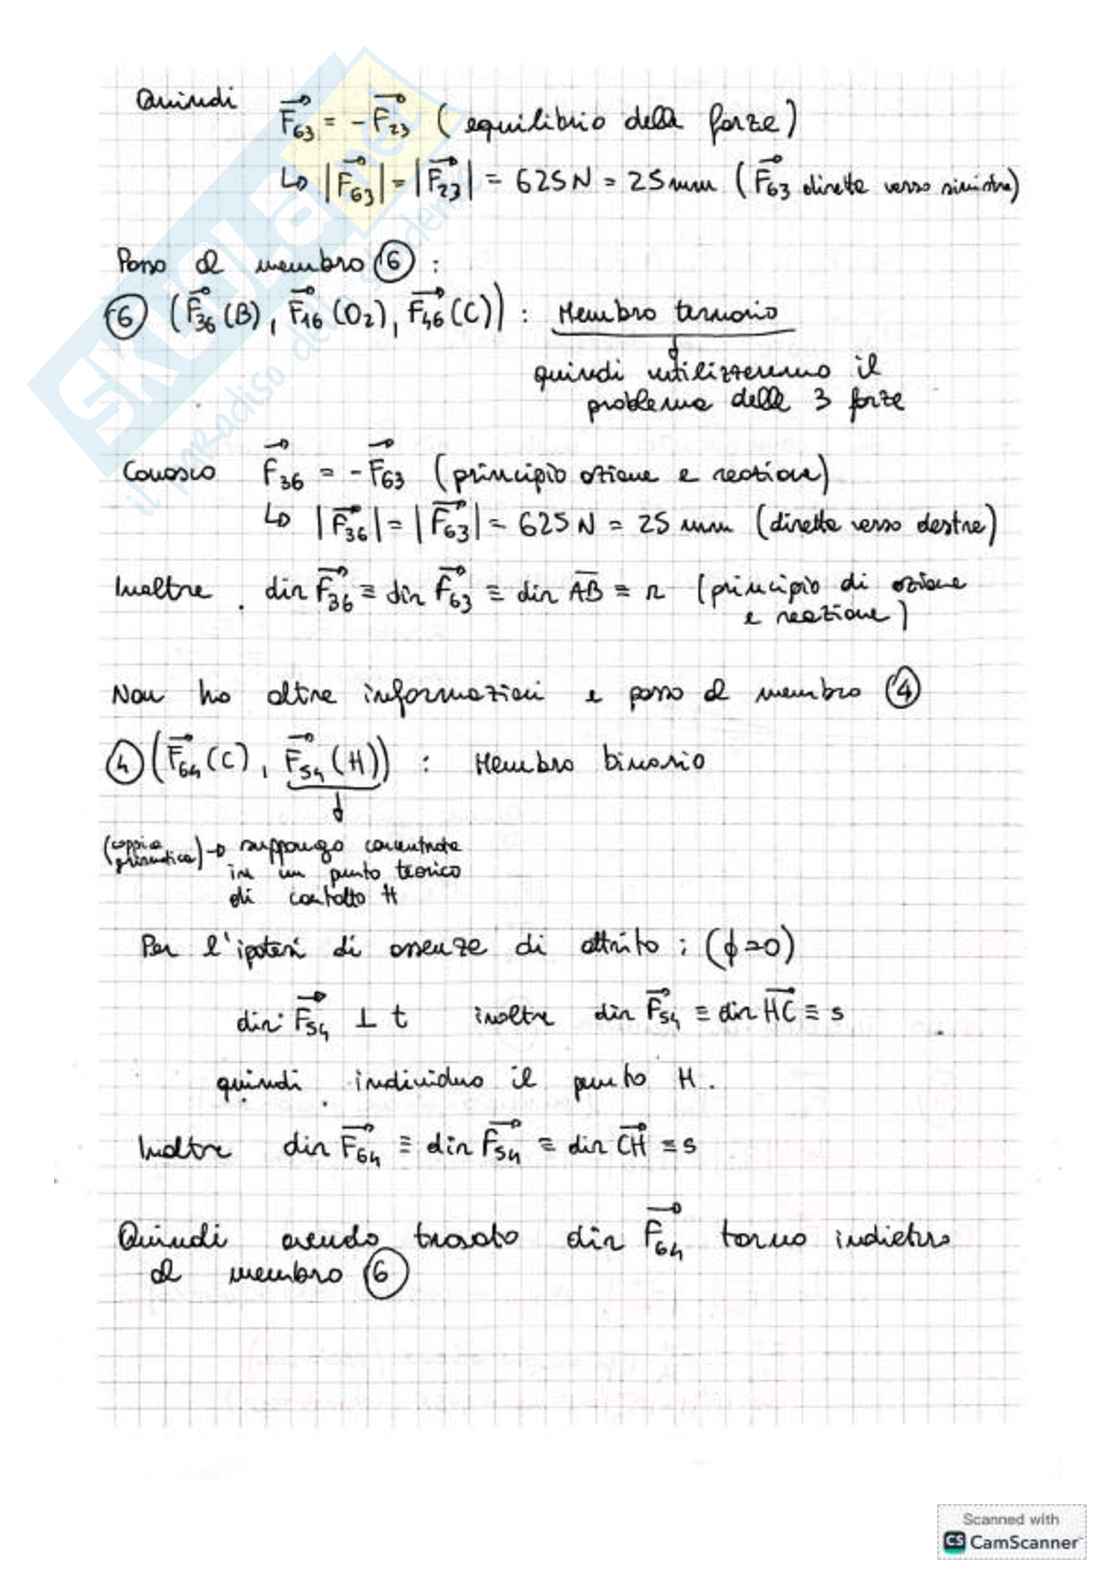 Quindi
F63 = - F23 ( equilibrio delle forze )
↳ |F63| = |F23| = 625N = 25mm ( F63 diretta verso sinistra)
Passo al membro 6 :
6 (F36 (B), F16 (O2), F46 (C)) : Membro ternario
quindi utilizzeremo il
problema delle 3 forze
Conosco F36 = - F63 (principio azione e reazione)
↳ |F36| = |F63| = 625 N = 25 mm (diretta verso destra)
Inoltre dir F36 ≡ dir F63 ≡ dir AB ≡ r (principio di azione
e reazione)
Non ho altre informazioni e passo al membro 4
4 (F64 (C), F54 (H)) : Membro binario
(coppia prismatica) → suppongo concentrata
in un punto teorico
di contatto H
Per l'ipotesi di assenza di attrito : (ϕ=0)
dir F54 ⊥ t inoltre dir F54 ≡ dir HC ≡ s
quindi individuo il punto H.
Inoltre dir F64 ≡ dir F54 ≡ dir CH ≡ s
Quindi avendo trovato dir F64 torno indietro
al membro 6
SKUOLA.net
il paradiso dello studente
Scanned with
CS CamScanner